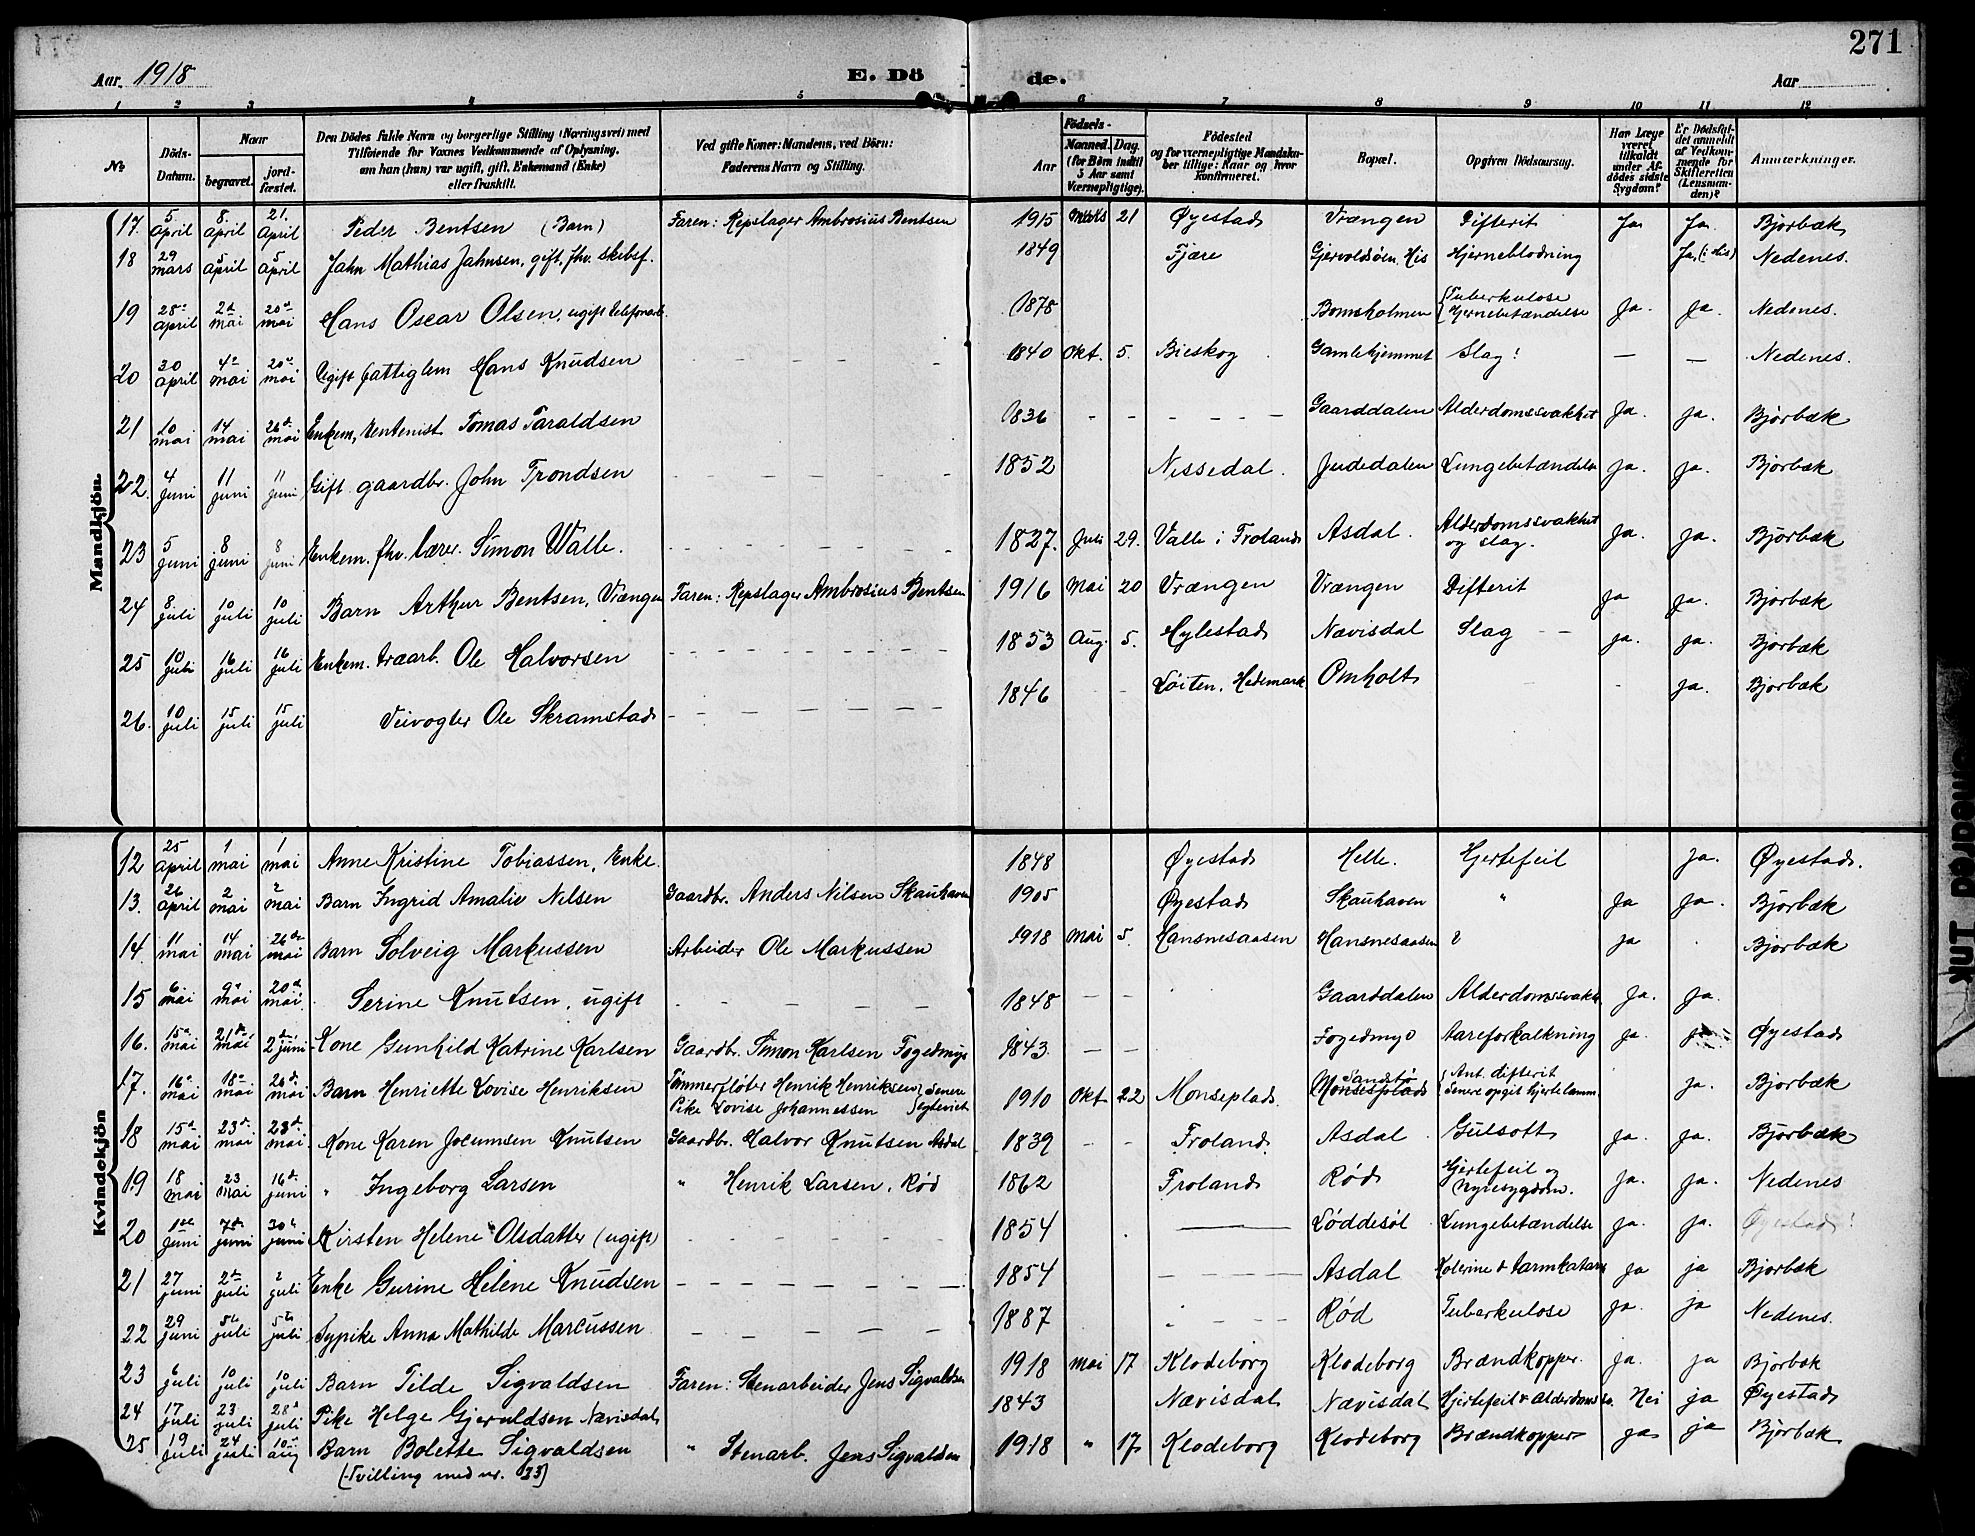 271
Aar 1918 E. Dö de. Aar
1 2 3 4 5 6 7 8 9 10 11 12
No Döds-Datum. Naar begravet. jord-fæstet. Den Dödes fulde Navn og borgerlige Stilling (Næringsvei) med Tilföiende for Voxnes Vedkommende af Oplysning, om han (hun) var ugift, gift, Enkemand (Enke) eller fraskilt. Ved gifte Koner: Mandens, ved Börn: Faderens Navn og Stilling. Födsels- Aar Maaned. Dag. (for Börn indtil 5 Aar samt Værnepligtige). Födested og for værnepligtige Mandskaber tillige: Naar og hvor konfirmeret. Bopæl. Opgiven Dödsaarsag. Har Læge været tilkaldt under Afdödes sidste Sygdom? Er Dödsfaldet anmeldt af Vedkommende for Skifteretten (Lensmanden)? Anmærkninger.
Mandkjön.
17. 5 april 8. april 21. April Peder Bentsen (Barn) Faren: Repslager Ambrosius Bentsen 1915 Mars 21 Øyestad Vrængen Difterit Ja Ja Bjorbæk
18 29 mars 5 april 5 april Jahn Mathias Jahnsen, gift, fhv. skibsf. 1849 Fjære Gjervoldsøen, His Hjerneblodning Ja (: His) Nedenes.
19 28de april 2d mai 20de mai Hans Oscar Olsen, ugift telefonarb. 1878 Bomsholmen {Tuberkulose Hjernebetændelse Ja. Ja. Nedenes.
20 30 april 4de mai 20de mai Ugift fattiglem Hans Knudsen - - - - - 1840 Okt. 5. Bieskog Gamlehjemmet Slag! — — Nedenes.
21 10 mai 14 mai 26de mai Enkem, rentenist Tomas Taraldsen 1836 - - - - - - Gaarddalen Alderdomssvakhet Ja. ja. Bjorbæk
22. 4 juni 11 juni 11 juni Gift gaardbr. John Trondsen - - - - - - 1852 Nissedal. Judedalen Lungebetændelse ja. ja. Bjorbæk
23 5 juni 8 juni 8 juni Enkem. fhv. lærer. Simon Walle. - - - - - - - 1827. Juli 29. Valle i Froland Asdal. Alderdomssvakhet og slag. ja. ja. Bjorbæk
24 8 juli 10 juli 10 juli Barn Arthur Bentsen, Vrængen Faren: Repslager Ambrosius Bentsen 1916 Mai 20 Vrængen Vrængen Difterit ja ja. Bjorbæk
25 10 juli 16 juli 16 juli Enkem. traarb. Ole Halvorsen - - - - - - - - 1853 Aug. 5. Hylestad Nævisdal Slag - - ja. ja. Bjorbæk
26. 10 juli 15 juli 15 juli Veivogter Ole Skramstad - - - - - - - 1846 - Löiten, Hedemark Omholt ja. Bjorbæk
Kvindekjön
12 25 April 1 mai 1 mai Anne Kristine Tobiassen, Enke. 1848 Øyestad Helle. Hjertefeil ja. Øyestad.
13. 26 April 2 mai 2 mai Barn Ingrid Amalie Nilsen Gaardbr. Anders Nilsen Skauhaven 1905 Øyestad Skauhaven " ja ja. Bjorbæk
14. 11 mai 14 mai 26de mai Barn Solveig Markussen Arbeider Ole Markussen 1918 mai 5. Hansnesaasen Hansnesaasen ? ja Bjorbæk
15 6 mai 9de mai 20de mai Serine Knutsen, ugift - - - - - 1848 - - Gaarddalen Alderdomssvakh. ja. ja.
16. 15de mai 21de mai 2de juni Kone Gunhild Katrine Karlsen Gaardbr. Simon Karlsen Fogedmyr 1843. - - Fogedmyr Aareforkalkning ja. ja Øyestad
17. 16de mai 18de mai 26de mai Barn Henriette Lovise Henriksen Tömmerflöter Henrik Henriksen Pike Lovise Johannessen } senere egteviet 1910 Okt. 22 Monseplads. Sandstø Monseplads {Ant. difterit senere opgit hjertelamm. ja. Bjorbæk
18 15de mai 23de mai 23de mai Kone Karen Jocumsen Knutsen Gaardbr. Halvor Knutsen Asdal 1839 - - Froland. Asdal Gulsott ja. ja. Bjorbæk
19 18 mai 23 mai 16de juni " Ingeborg Larsen " Henrik Larsen, Röd 1862 Froland Röd Hjertefeil og Nyresygdom. ja. ja. Nedenes
20 1ste juni 7de juni 30te juni Kirsten Helene Olsdatter (ugift) - - - - - - 1854 — Löddesöl Lungebetændelse ja. ja. Øyestad!
21 27 juni 2de juli 2 juli Enke Gurine Helene Knudsen - - - - - - - 1854 - - - Asdal Kolerine & Tarmkatarr ja ja Bjorbæk
22 29 juni 5te juli 5te juli Sypike Anna Mathilde Marcussen - - - - - 1887 - - - Röd Tuberkulose ja. ja Nedenes.
23 6 juli 10 juli 10 juli Barn Tilde Sigvaldsen Faren: Stenarbeider Jens Sigvaldsen 1918 Mai 17 Klodeborg Klodeborg Brændkopper. ja. ja Bjorbæk
24 17 juli 23 juli 28de juli Pike Helge Gjeruldsen Nævisdal 1843 Nævisdal Nævisdal Hjertefeil & Alderdomssv. Nei ja Øyestad
25 19 juli 24 juli 10de aug Barn Bolette Sigvaldsen " Stenarb. Jens Sigvaldsen 1918 " 17 Klodeborg Klodeborg Brændkopper ja ja Bjorbæk
(Tvilling med nr. 23)